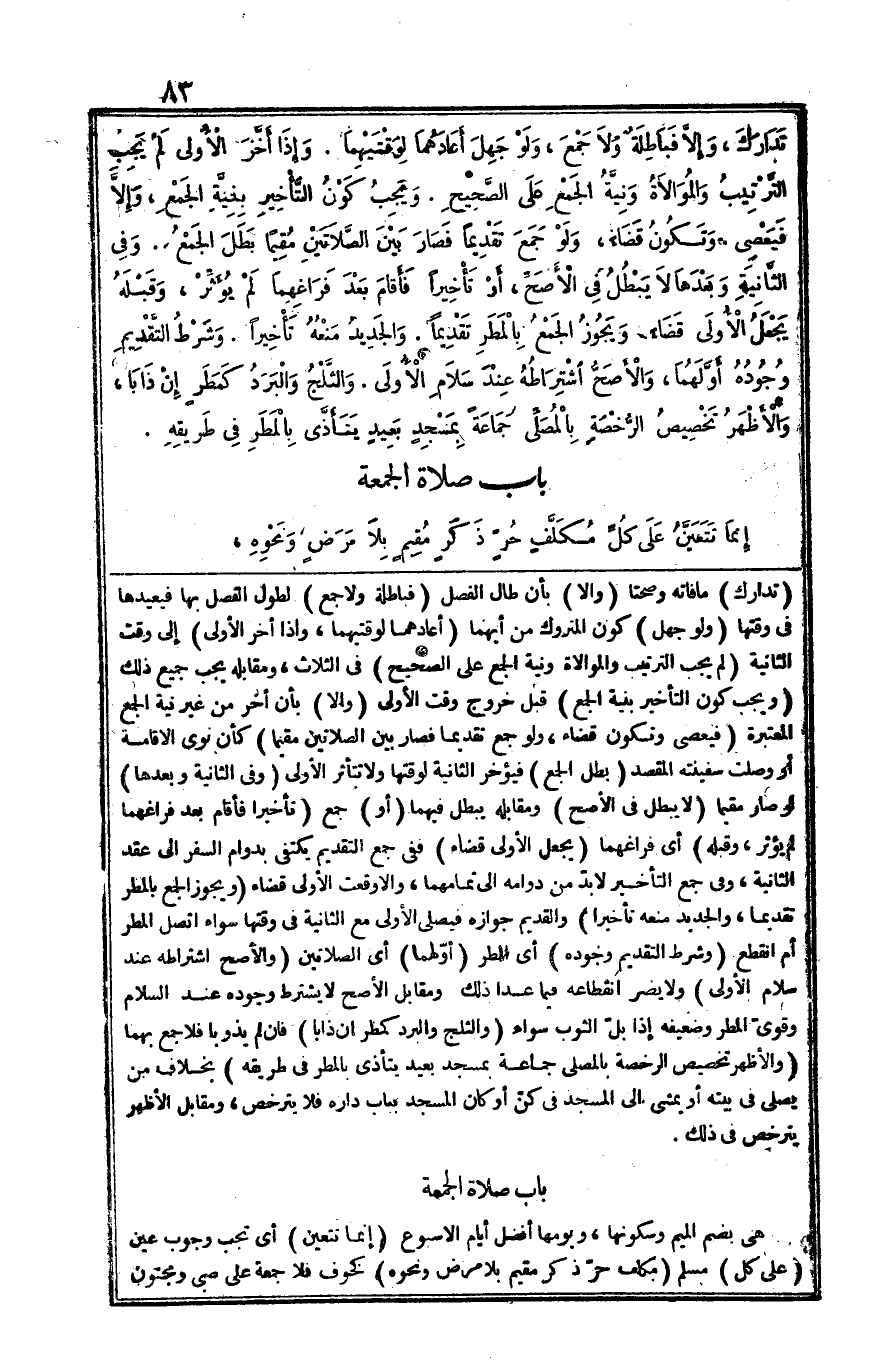 ٨٣
تَدَارَكَ ، وَإِلاَّ فَبَاطِلَةٌ وَلاَ جَمْعَ ، وَلَوْ جَهِلَ أَعَادَهُمَا لِوَقْتَيْهِمَا . وَإِذَا أَخَّرَ الْأُولى لَمْ يَجِبِ
التَّرْتِيبُ وَالْمُوَالاَةُ وَنِيَّةُ الجَمْعِ عَلَى الصَّحِيْحِ . وَيَجِبُ كَوْنُ التَّأْخِيرِ بِنِيَّةِ الجَمْعِ ، وَإِلاَّ
فَيَعْصِي وَتَكُونُ قَضَاءً ، وَلَوْ جَمَعَ تَقْدِيماً فَصَارَ بَيْنَ الصَّلاَتَيْنِ مُقِيمًا بَطَلَ الجَمْعُ . وَفِى
الثَّانِيَةِ وَبَعْدَهَا لاَ يَبْطُلُ فِى الْأَصَحِّ ، أَوْ تَأْخِيراً فَأَقَامَ بَعْدَ فَرَاغِهِمَا لَمْ يُؤَثِّرْ ، وَقَبْلَهُ
يَجْعَلُ الْأُولَى قَضَاءً . وَيَجُوزُ الجَمْعُ بِالْمَطَرِ تَقْدِيماً . وَالجَدِيدُ مَنْعُهُ تَأْخِيراً . وَشَرْطُ التَّقْدِيمِ
وُجُودُهُ أَوَّلَهُمَا ، وَالْأَصَحُّ اشْتِرَاطُهُ عِنْدَ سَلاَمِ الْأُولَى . وَالثَّلْجُ وَالْبَرَدُ كَمَطَرٍ إِنْ ذَابَا ،
وَالْأَظْهَرُ تَخْصِيصُ الرُّخْصَةِ بِالْمُصَلِّى جَمَاعَةً بِمَسْجِدٍ بَعِيدٍ يَتَأَذَّى بِالْمَطَرِ فِى طَرِيقِهِ .
باب صلاة الجمعة
إِنمَا تَتَعَيَّنُ عَلَى كُلِّ مُكَلَّفٍ حُرٍّ ذَكَرٍ مُقِيمٍ بِلاَ مَرَضٍ وَنَحْوِهِ ،
( تدارك ) مافاته وصحتا ( والا ) بأن طال الفصل ( فباطلة ولاجمع ) لطول الفصل بها فيعيدها
فى وقتها ( ولو جهل ) كون المتروك من أيهما ( أعادهما لوقتيهما ، واذا أخر الأولى ) إلى وقت
الثانية ( لم يجب الترتيب والموالاة ونية الجمع على الصحيح ) فى الثلاث ، ومقابله يجب جميع ذلك
( ويجب كون التأخير بنية الجمع ) قبل خروج وقت الأولى ( والا ) بأن أخر من غير نية الجمع
المعتبرة ( فيعصى وتكون قضاء ، ولو جمع تقديما فصار بين الصلاتين مقيما ) كأن نوى الاقامة
أو وصلت سفينته المقصد ( بطل الجمع ) فيؤخر الثانية لوقتها ولاتتأثر الأولى ( وفى الثانية وبعدها )
لو صار مقيما ( لايبطل فى الأصح ) ومقابله يبطل فيهما ( أو ) جمع ( تأخيرا فأقام بعد فراغهما
لم يؤثر ، وقبله ) أى فراغهما ( يجعل الأولى قضاء ) ففى جمع التقديم يكتفى بدوام السفر الى عقد
الثانية ، وفى جمع التأخير لابدّ من دوامه الى تمامهما ، والاوقعت الأولى قضاء ( ويجوز الجمع بالمطر
تقديما ، والجديد منعه تأخيرا ) والقديم جوازه فيصلى الأولى مع الثانية فى وقتها سواء اتصل المطر
أم انقطع ( وشرط التقديم وجوده ) أى المطر ( أوّلهما ) أى الصلاتين ( والأصح اشتراطه عند
سلام الأولى ) ولايضر انقطاعه فيما عدا ذلك ومقابل الأصح لايشترط وجوده عند السلام
وقوىّ المطر وضعيفه إذا بلّ الثوب سواء ( والثلج والبرد كمطر ان ذابا ) فان لم يذوبا فلاجمع بهما
( والأظهر تخصيص الرخصة بالمصلى جماعة بمسجد بعيد يتأذى بالمطر فى طريقه ) بخلاف من
يصلى فى بيته أو يمشى الى المسجد فى كنّ أو كان المسجد بباب داره فلا يترخص ، ومقابل الأظهر
يترخص فى ذلك .
باب صلاة الجمعة
هى بضم الميم وسكونها ، ويومها أفضل أيام الاسبوع ( إنما تتعين ) أى تجب وجوب عين
( على كل ) مسلم ( مكلف حرّ ذكر مقيم بلامرض ونحوه ) كخوف فلا جمعة على صبى ومجنون